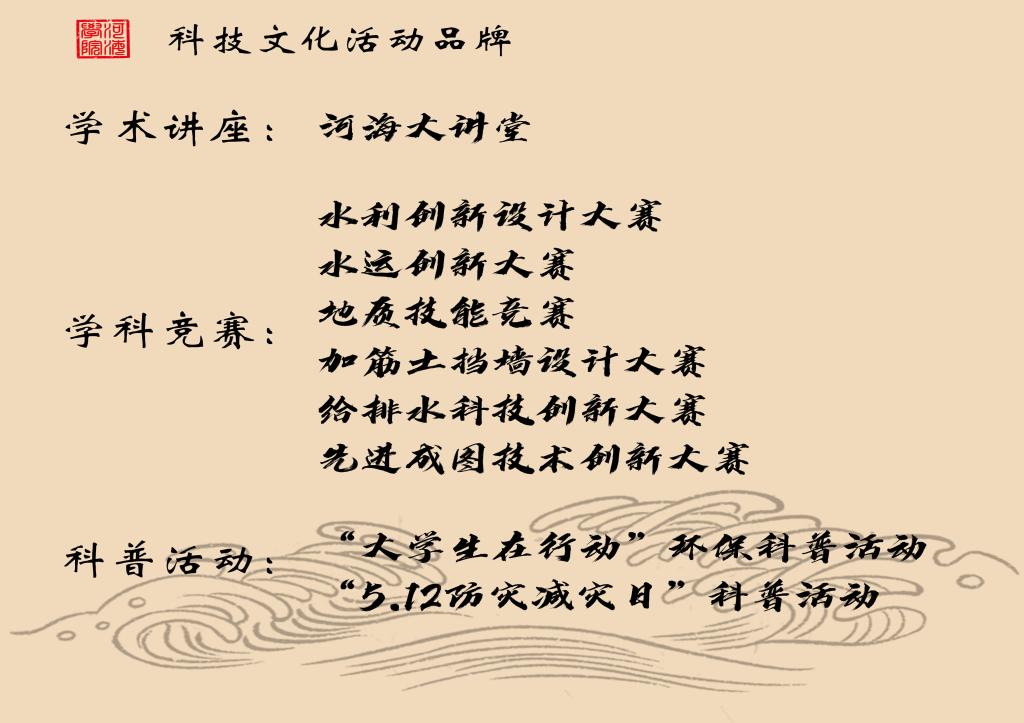 河海學院
科技文化活动品牌
学术讲座：河海大讲堂
水利创新设计大赛
水运创新大赛
地质技能竞赛
学科竞赛：
加筋土挡墙设计大赛
给排水科技创新大赛
先进成图技术创新大赛
科普活动：“大学生在行动”环保科普活动
“5.12防灾减灾日”科普活动